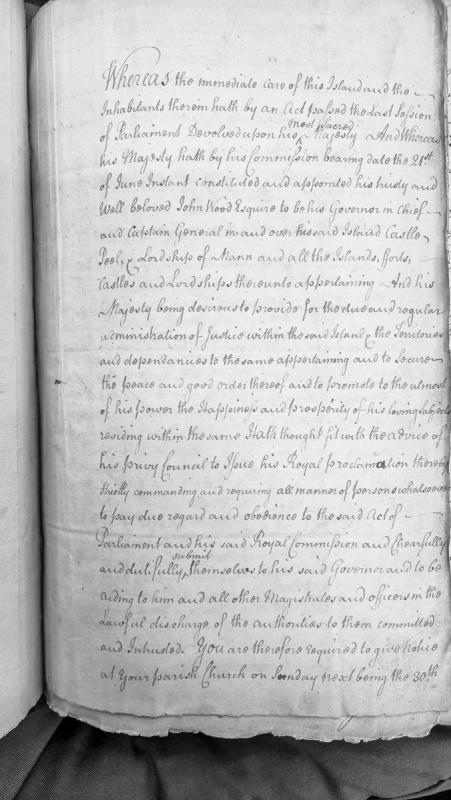 Whereas the immediate care of this Island and the
Inhabitants therein hath by an Act passed the Last Session
of Parliament Devolved upon his most Sacred Majesty And Whereas
his Majesty hath by his Commission bearing date the 21st
of June Instant constituted and appointed his trusty and
Well beloved John Wood Esquire to be his Governor in Chief
and Captain General in and over the said Island Castle
Peel, & Lordship of Mann and all the Islands, fforts,
Castles and Lordships thereunto appertaining And his
Majesty being desirous to provide for the due and regular
administration of Justice within the said Island & the Territories
and dependancies to the same appertaining and to Secure
the peace and good order thereof and to promote to the utmost
of his power the Happiness and prosperity of his loving subjects
residing within the same Hath thought fit with the advice of
his Privy Council to Issue his Royal proclamation thereby
strictly commanding and requiring all manner of persons whatsoever
to pay due regard and obedience to the said Act of
Parliament and his said Royal Commission and Chearfully
and dutifully submit themselves to his said Governor and to be
aiding to him and all other Magistrates and officers in the
Lawful discharge of the authorities to them committed
and Intrusted. You are therefore required to give Notice
at Your parish Church on Sunday next being the 30th